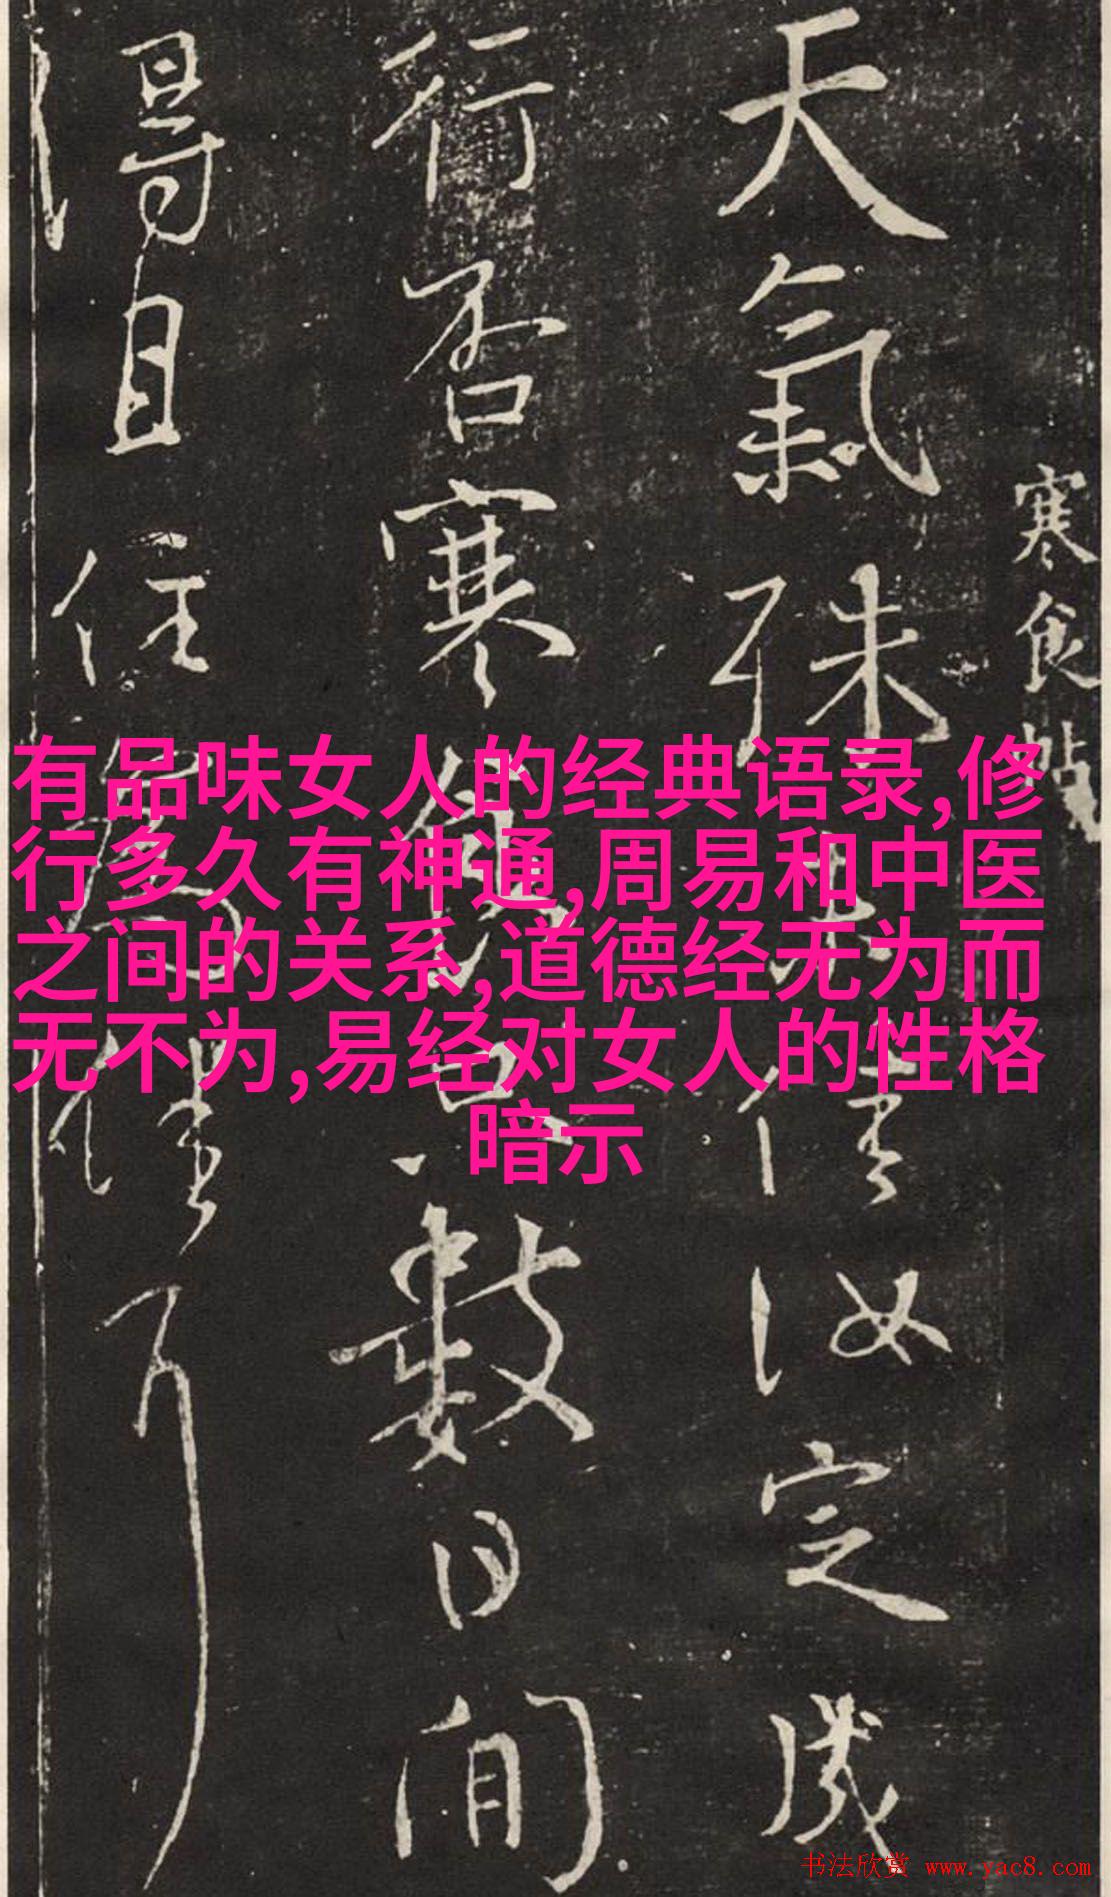 寒食帖
天氣殊未佳汝定成
行否寒食只數日間
得且住為佳耳
有品味女人的经典语录,修
行多久有神通,周易和中医
之间的关系,道德经无为而
无不为,易经对女人的性格
暗示
书法欣赏 www.yac8.com